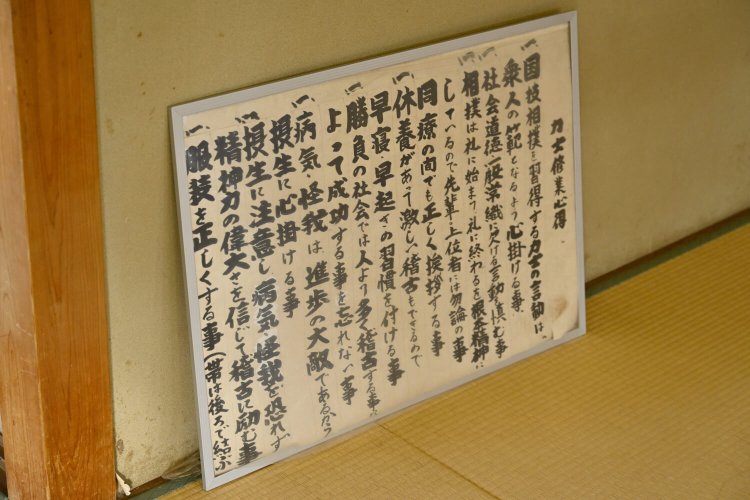 力士修業心得
一国技相撲を習得する力士の言動は、
衆人の範となるよう心掛ける事、
一社会道徳一般常識に欠ける言動を慎む事
一相撲は礼に始まり礼に終わるを根本精神に
しているので先輩上位者には勿論の事
同療の間でも正しく挨拶する事
一休養があって激しい稽古もできるので
早寝・早起きの習慣を付ける事
一勝負の社会では人より多く稽古する事に
よって成功する事を忘れない事
一病気・怪我は進歩の大敵であるから
摂生に心掛ける事
一摂生に注意し病気・怪我を恐れず
精神力の偉大さを信じて稽古に励む事
一服装を正しくする事(帯は後ろで結ぶ